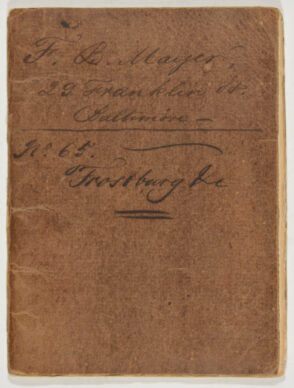 F. B. Mayer,
29 Franklin St.
Baltimore —
No. 65.
Frostburg &c